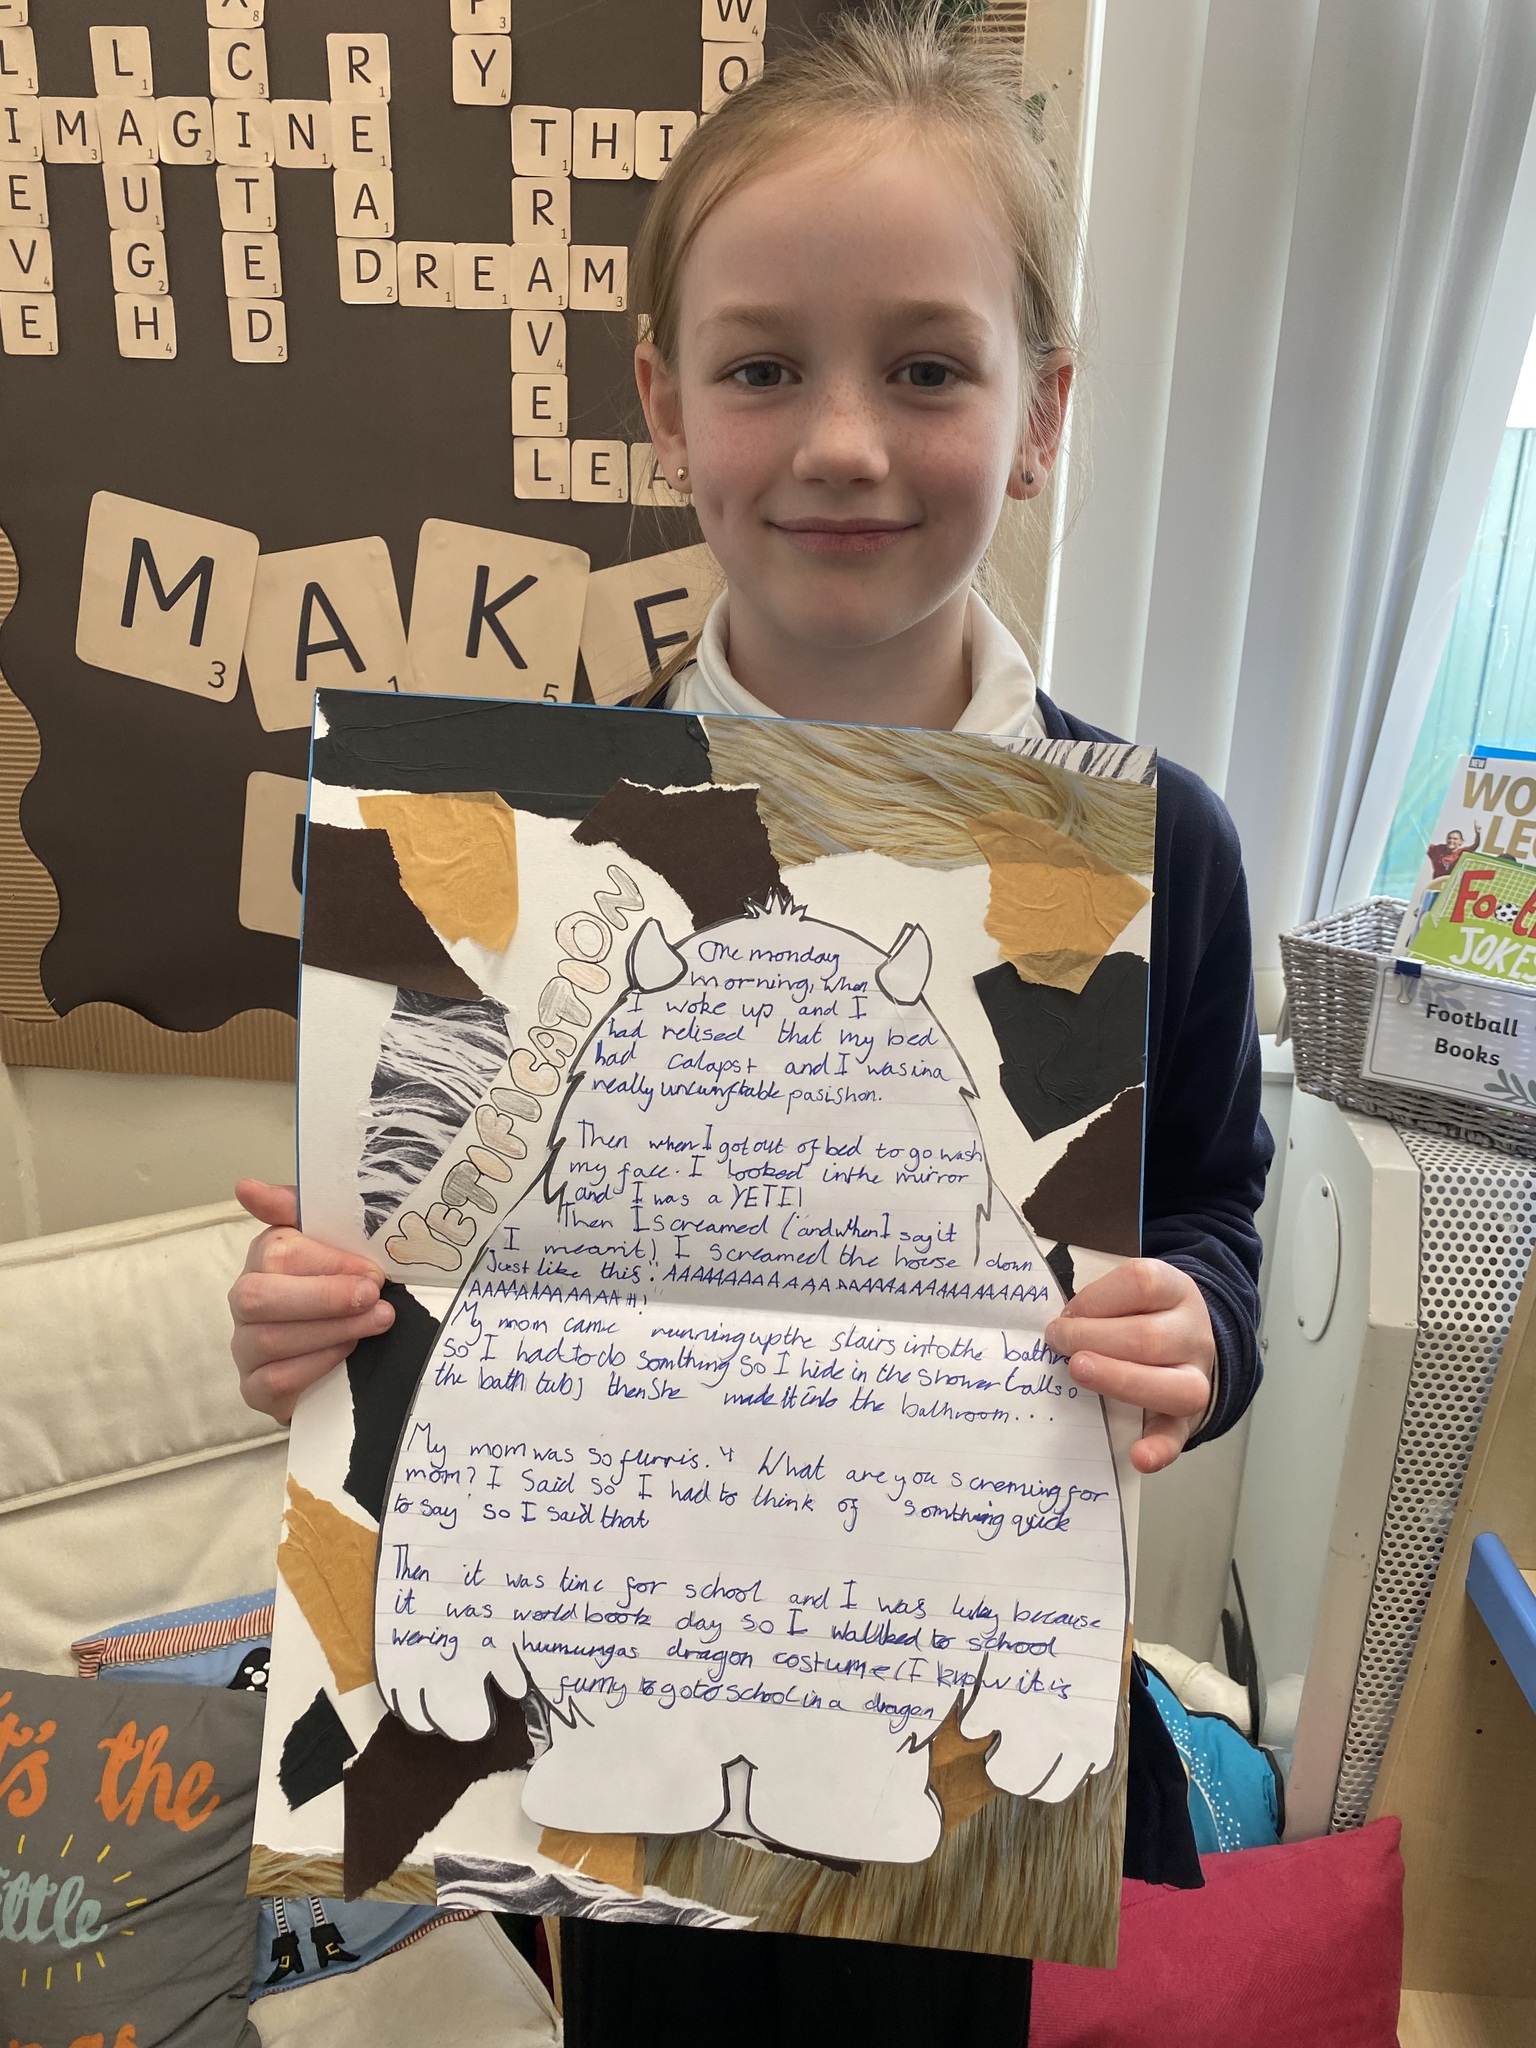 IMAGINE
LAUGH
CITED
READ
DREAM
TRAVEL
THI
LEA
PY
WO
EVE
MAKE
M 3
A 1
K 5
YETIFICATION
One monday
morning, when
I woke up and I
had relised that my bed
had calapst and I was in a
really uncumftable pasishon.
Then when I got out of bed to go wash
my face. I looked in the mirror
and I was a YETI!
Then I screamed (and when I say it
I meanit) I screamed the house down
Just like this: AAAAAAAAAAAAAAAAAAAAAAAAAAA
AAAAAAAAAAAA!!!
My mom came running up the stairs into the bathr
so I had to do somthing so I hide in the shower (allso
the bath tub) then she made it into the bathroom...
My mom was so furris. " What are you screming for
mom? I said so I had to think of somthing quick
to say so I said that
Then it was time for school and I was luky because
it was world book day so I wallked to school
wering a humungas dragon costume (I know it is
funny to go to school in a dragon
NEW
WO
LE
Foot
JOKE
Football
Books
's the
ttle